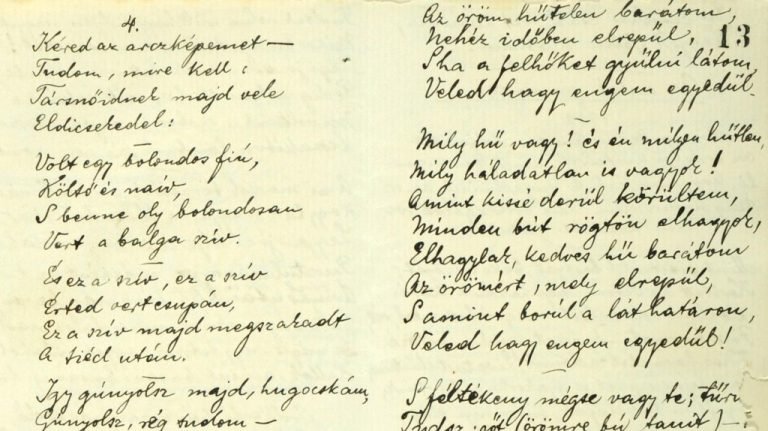 4.
Kéred az arczképemet —
Tudom, mire kell:
Társnőidnek majd vele
Eldicsekedel:
Volt egy bolondos fiú,
Költő és naív,
S benne oly bolondosan
Vert a balga szív.
És ez a szív, ez a szív
Érted vert csupán,
Ez a szív majd megszakadt
A tiéd után.
Igy gúnyolsz majd, hugocskám,
Gúnyolsz, rég tudom —
13
Az öröm, hűtelen barátom,
Nehéz időben elrepül,
S ha a felhőket gyűlni látom,
Veled hagy engem egyedül.
Mily hű vagy! és én milyen hűtlen,
Mily háladatlan is vagyok!
Amint kissé derűl körültem,
Minden bút rögtön elhagyok,
Elhagylak, kedves hű barátom
Az örömért, mely elrepül,
S amint borúl a láthatáron,
Veled hagy engem egyedűl!
S féltékeny mégse vagy te; tűrni
Tudsz, sőt (örömre bú tanít) —